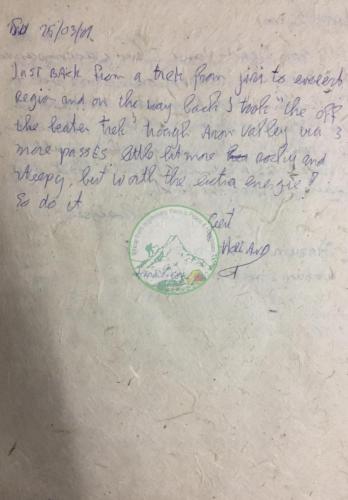 25/03/01
Just BAck from a trek from jiri to everest
Regio and on the way back I took "the off
the beater trek" trough Arun valley via 3
more passes little bit more rocky and
steepy, but worth the extra energie!
So do it
Geert
HOLLAND